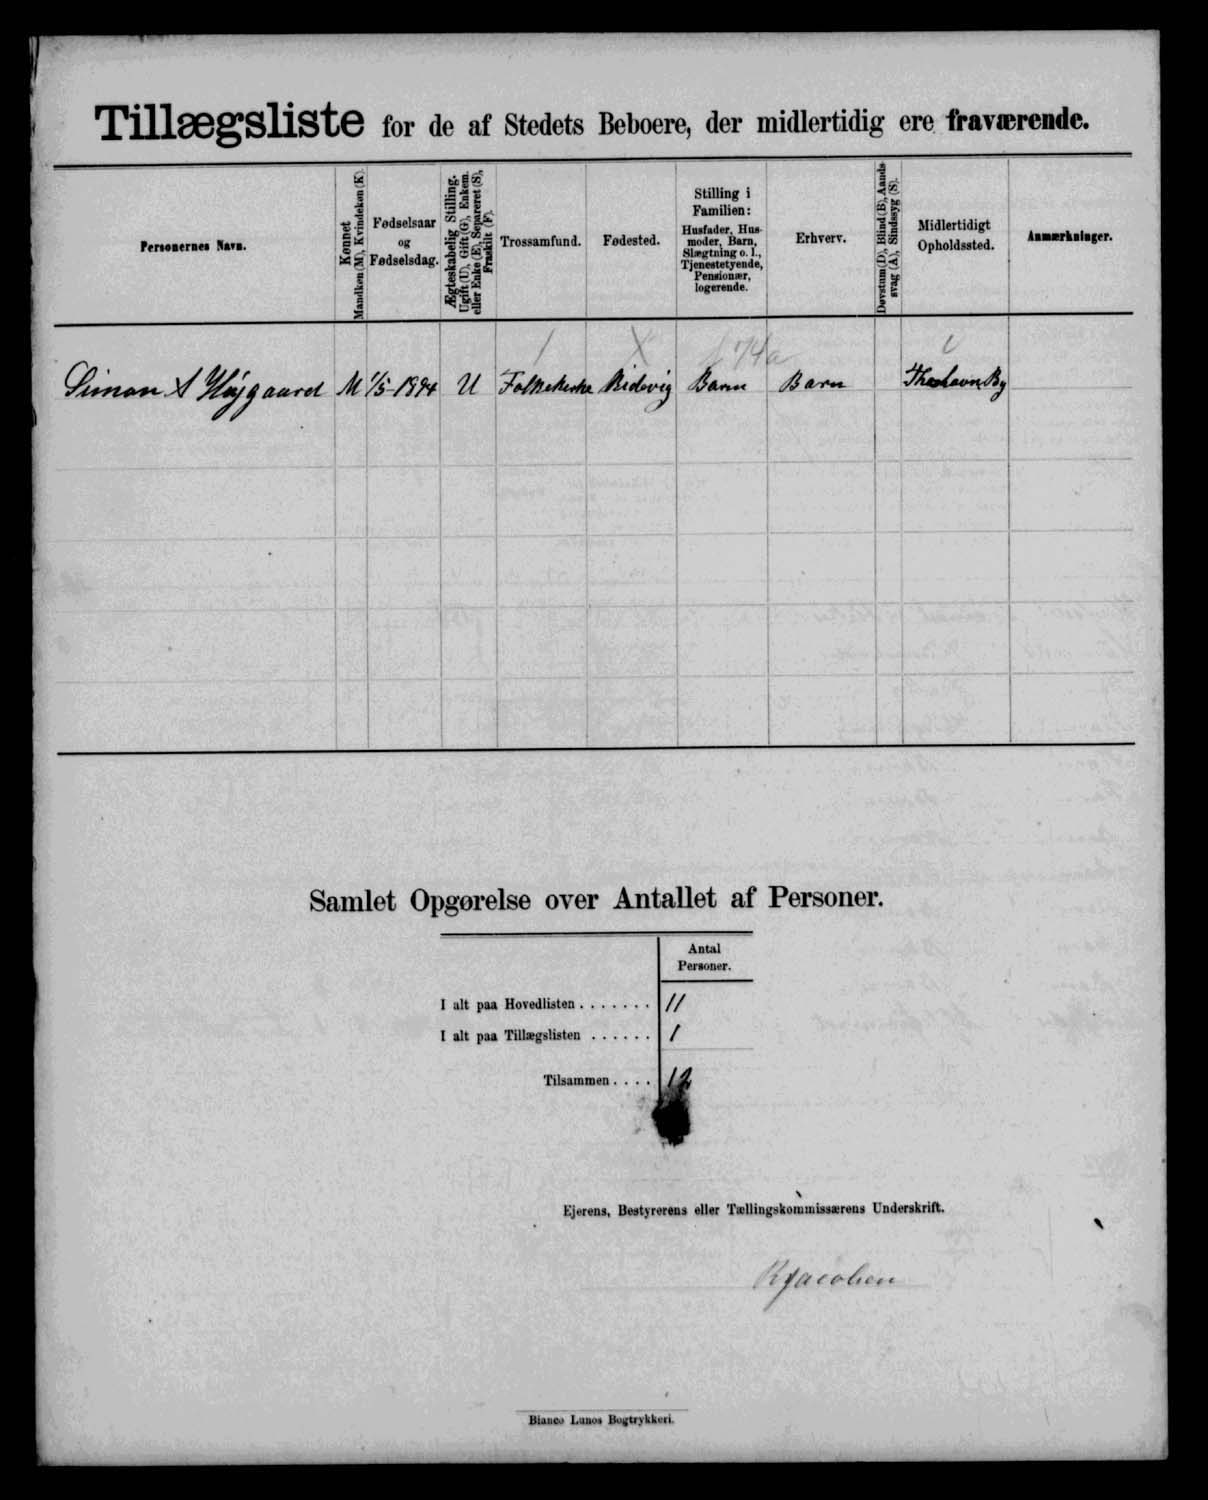 Tillægsliste for de af Stedets Beboere, der midlertidig ere fraværende.
Personernes Navn.
Kønnet
Mandkøn (M), Kvindekøn (K).
Fødselsaar
og
Fødselsdag.
Ægteskabelig Stilling.
Ugift (U), Gift (G), Enkem.
eller Enke (E), Separeret (S),
Fraskilt (F).
Trossamfund.
Fødested.
Stilling i
Familien:
Husfader, Hus-
moder, Barn,
Slægtning o. l.,
Tjenestetyende,
Pensionær,
logerende.
Erhverv.
Døvstum (D), Blind (B), Aands-
svag (A), Sindssyg (S).
Midlertidigt
Opholdssted.
Anmærkninger.
74a
Simon A Højgaard M 1/5-1894 U Folkekirke Bidevig Barn Barn Thorshavn By
Samlet Opgørelse over Antallet af Personer.
Antal
Personer.
I alt paa Hovedlisten . . . . . . . 11
I alt paa Tillægslisten . . . . . . 1
Tilsammen . . . . 12
Ejerens, Bestyrerens eller Tællingskommissærens Underskrift.
Jacobsen
Bianco Lunos Bogtrykkeri.